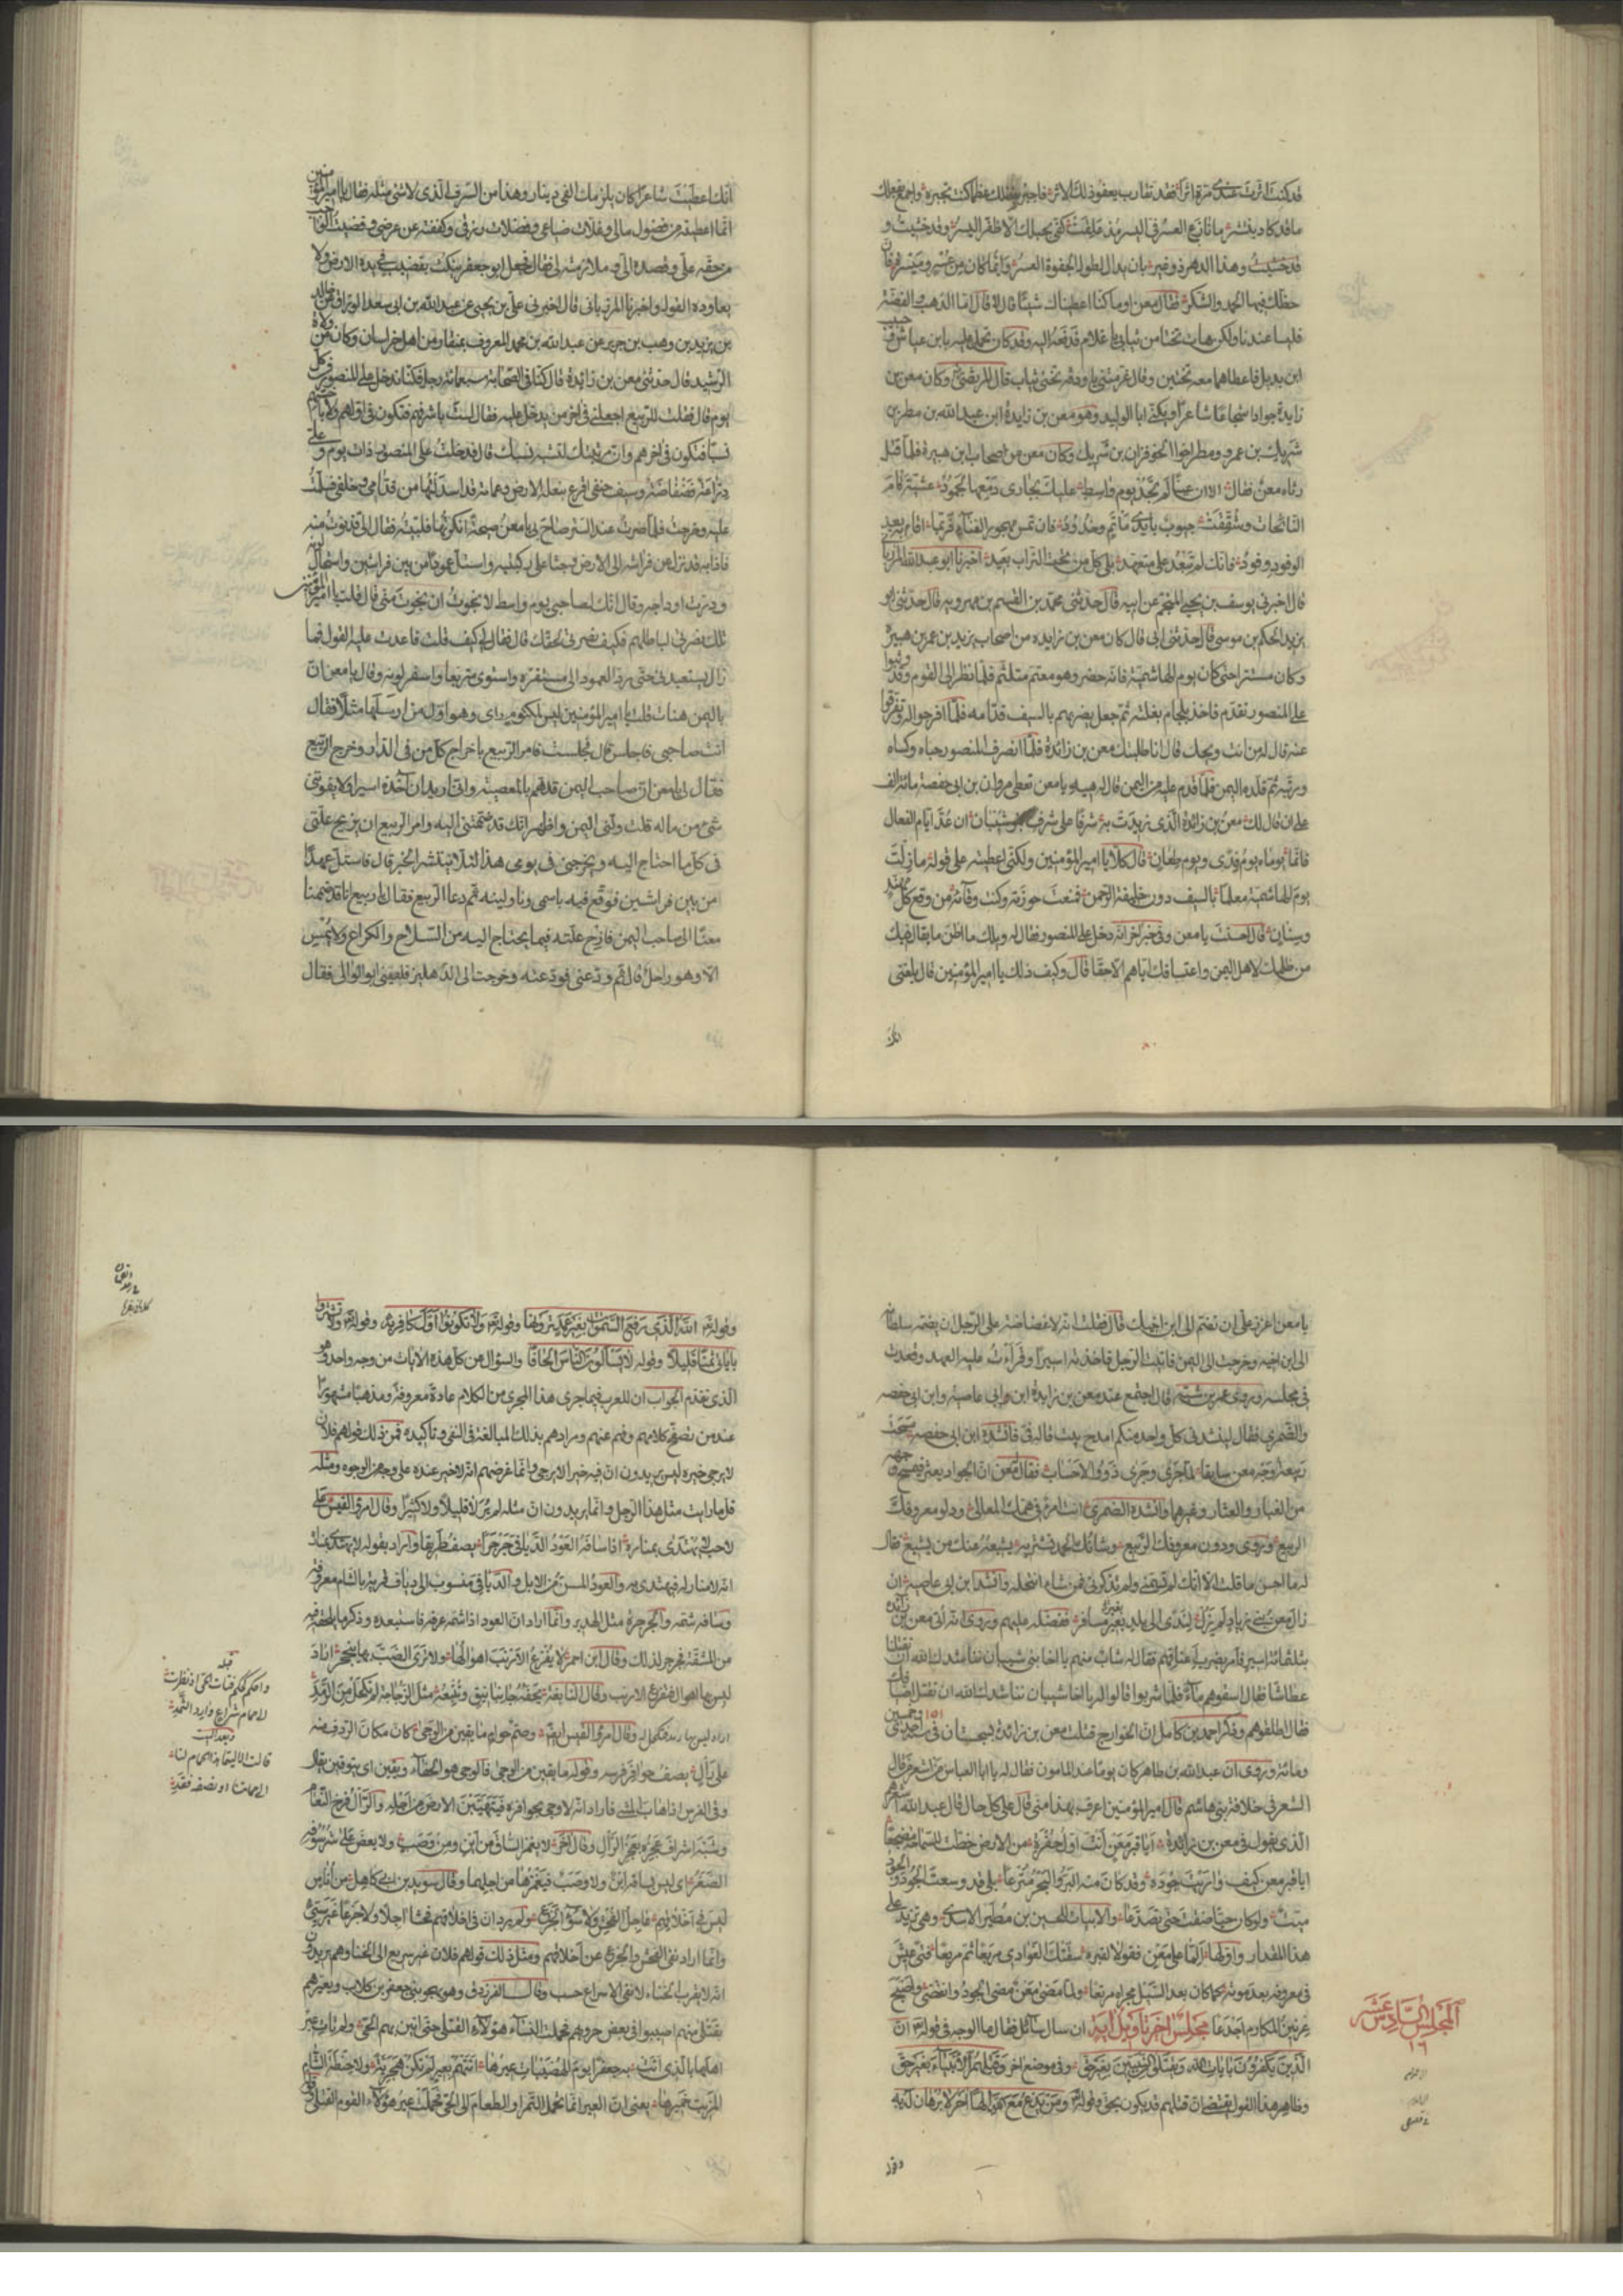 قد كنت اثرت عندي مرة اثرا فقد تقارب يعفو ذلك الاثر فاجبر بفضلك عظما كنت تجبره واجمع بفعلك
ما قد كاد ينتشر ما نازع العسر في اليسر مذ علقت كفي بحبلك الا ظفر اليسر وقد خشيت و
قد خشيت وهذا الدهر ذو غير بان يدال لطول الجفوة العسر وانما كان من عسر وميسر فان
حظك فيها الحمد والشكر فقال معن اوما كنا اعطيناك شيئا قال لا قال اما الذهب والفضة
فليسا عندنا ولكن هات تختا من ثيابي يا غلام فدفعه اليه وقد كان تحمل عليه بابن عياش و
ابن بديل فاعطاهما معه تختين وقال غرمتني يا تختي ثياب قال المرتضى وكان معن بن
زايدة جوادا شجاعا شاعرا ويكنى ابا الوليد وهو معن بن زايدة ابن عبد الله بن مطر بن
شريك بن عمرو ومطر اخوا الحوفزان بن شريك وكان معن من اصحاب ابن هبيرة فلما قتل
رثاه معن فقال الا ان عينا لم تجد يوم واسط عليك بجاري دمعها لجمود عشية قام
النائحات وشققت جيوب بايدي مأتم وخدود فان تمس مهجور الفناء فربما اقام به بعد
الوفود وفود فانك لم تبعد على متعهد بلى كل من تحت التراب بعيد اخبرنا ابو عبد الله المرزباني
قال اخبرني يوسف بن يحيى المنجم عن ابيه قال حدثني محمد بن القسم بن مهرويه قال حدثني ابو
يزيد الحكم بن موسى قال حدثني ابي قال كان معن بن زايدة من اصحاب يزيد بن عمر بن هبيرة
وكان مستترا حتى كان يوم الهاشمية فانه حضر وهو معتم متلثم فلما نظر الى القوم وقد وثبوا
على المنصور تقدم فاخذ بلجام بغلته ثم جعل يضربهم بالسيف قدامه فلما افرجوا له وتفرقوا
عنه قال له من انت ويحك قال انا طلبتك معن بن زائدة فلما انصرف المنصور حباه وكساه
ورتبه ثم قلده اليمن فلما قدم عليه من اليمن قال له هيه يا معن تعطي مروان بن ابي حفصة مائة الف
على ان قال لك معن بن زائدة الذي زيدت به شرفا على شرف بنو شيبان ان عد ايام الفعال
فانما يوماه يوم ندى ويوم طعان قال كلا يا امير المؤمنين ولكني اعطيته على قوله ما زلت
يوم الهاشمية معلنا بالسيف دون خليفة الرحمن فمنعت حوزته وكنت وقاءه من وقع كل مهند
وسنان قال احسنت يا معن وفي خبر اخر انه دخل على المنصور فقال له ويلك ما اظن ما يقال فيك
من ظلمك لاهل اليمن واعتسافك اياهم الا حقا قال وكيف ذلك يا امير المؤمنين قال بلغني
انك
انك اعطيت شاعرا كان يلزمك الف دينار وهذا من السرف الذي لا شئ مثله فقال يا امير المؤمنين
انما اعطيته من فضول مالي وغلات ضياعي وفضلات رزقي وكففته عن عرضي وقضيت الواجب
من حقه علي وقصده الي وملازمته لي فقال فجعل ابو جعفر ينكت بقضيب في يده الارض ولا
يعاوده القول واخبرنا المرزباني قال اخبرني علي بن يحيى عن عبد الله بن ابي سعد الوراق عن خالد
بن يزيد بن وهب بن جرير عن عبد الله بن محمد المعروف بمنقار من اهل خراسان وكان من ولاة
الرشيد قال حدثني معن بن زائدة قال كنا في الصحابة سبعمائة رجل فكنا ندخل على المنصور في كل
يوم قال فقلت للربيع اجعلني في اخر من يدخل عليه فقال لست باشرفهم فتكون في اولهم ولا باخسهم
نسبا فتكون في اخرهم وان مرتبتك لتشبه نسبك قال فدخلت على المنصور ذات يوم وعلي
دراعة فضفاضة وسيف حنفي اقرع بنعله الارض وعمامة قد اسدلتها من قدامي وخلفي فسلمت
عليه وخرجت فلما صرت عند الستر صاح بي يا معن صيحة انكرتها فلبيته فقال الي فدنوت منه
فاذا به قد نزل عن فراشه الى الارض وجثا على ركبتيه واستل عمودا من بين فراشين واستحال لونه
ودرت اوداجه وقال انك لصاحبي يوم واسط لا نجوت ان نجوت مني قال قلت يا امير المؤمنين
تلك نصرتي لباطلهم فكيف نصرتي لحقك قال فقال لي كيف قلت فاعدت عليه القول فما
زال يستعيدني حتى رد العمود الى مستقره واستوى متربعا واسفر لونه وقال يا معن ان
باليمن هنات قلت يا امير المؤمنين ليس لمكتوم راي وهو اول من ارسلها مثلا فقال
انت صاحبي فاجلس قال فجلست فامر الربيع باخراج كل من في الدار وخرج الربيع
فقال لي يا معن ان صاحب اليمن قد هم بالمعصية واني اريد ان آخذه اسيرا ولا يفوتني
شئ من ماله قلت ولني اليمن واظهر انك قد ضممتني اليه وامر الربيع ان يزيح علتي
في كل ما احتاج اليه ويخرجني في يومي هذا لئلا ينتشر الخبر قال فاستل عهدا
من بين فراشين فوقع فيه باسمي وناولنيه ثم دعا الربيع فقال يا ربيع انا قد ضممنا
معنا الى صاحب اليمن فازح علته فيما يحتاج اليه من السلاح والكراع ولا يمسي
الا وهو راحل قال ثم ودعني فودعته وخرجت الى الدهليز فلقيني ابو الوالي فقال
يا معن اعزز علي ان تضم الى ابن اخيك قال فقلت انه لا غضاضة على الرجل ان يضمه سلطانه
الى ابن اخيه وخرجت الى اليمن فاتيت الرجل فاخذته اسيرا وقرأت عليه العهد وقعدت
في مجلسه وروى عمر بن شبة قال اجتمع عند معن بن زايدة ابن ابي عاصية وابن ابي حفصة
والضمري فقال لينشدني كل واحد منكم امدح بيت قاله في فانشده ابن ابي حفصة مسحت
ربيعة وجه معن سابقا لما جرى وجرى ذووا الاحساب فقال معن ان الجواد يعثر فيمسح وجهه
من الغبار والعثار وغيرهما وانشده الضمري انت امرؤ همك المعالي ودلو معروفك
الربيع وروى ودون معروفك الربيع وشانك الحمد تشتريه يشيعه عنك من يشيع فقال
له ما احسن ما قلت الا انك لم تسمني ولم تذكرني فمن شاء انتحله وانشد ابن ابي عاصية ان
زال معن بني زياد لم يزل لندى الى بلد بغير مسافر ففضله عليهم وروى انه اتي معن بن زائدة
بثلثمائة اسير فامر بضرب اعناقهم فقال له شاب منهم يا اخا بني شيبان نناشدك الله ان تقتلنا
عطاشا فقال اسقوهم ماء فلما شربوا قالوا له يا اخا شيبان نناشدك الله ان تقتل اضيافك
فقال اطلقوهم وذكر احمد بن كامل ان الخوارج قتلت معن بن زائدة بسجستان في سنة احدى وخمسين
١٥١
ومائة وروى ان عبد الله بن طاهر كان يوما عند المامون فقال له يا ابا العباس من اشعر من قال
الشعر في خلافة بني هاشم قال امير المؤمنين اعرف بهذا مني قال على كل حال قال عبد الله اشعرهم
الذي يقول في معن بن زائدة ايا قبر معن انت اول حفرة من الارض خطت للسماحة مضجعا
ايا قبر معن كيف واريت جوده وقد كان منه البر والبحر مترعا بلى قد وسعت الجود والجود
ميت ولو كان حيا ضقت حتى تصدعا والابيات للحسين بن مطير الاسدي وهي تزيد على
هذا المقدار واولها الما على معن فقولا لقبره سقتك الغوادي مربعا ثم مربعا فتى عيش
في معروفه بعد موته كما كان بعد السيل مجراه مرتعا ولما مضى معن مضى الجود وانقضى واصبح
عرنين المكارم اجدعا مجلس اخر تاويل اية ان سال سائل فقال ما الوجه في قوله تعالى ان
الذين يكفرون بآيات الله ويقتلون النبيين بغير حق وفي موضع اخر وقتلهم الانبياء بغير حق
وظاهر هذا القول يقتضي ان قتلهم قد يكون بحق وقوله تعالى ومن يدع مع الله الها آخر لا برهان له به
المجلس السادس عشر
١٦
وقوله
وقوله تعالى الله الذي رفع السموات بغير عمد ترونها وقوله تعالى ولا تكونوا اول كافر به وقوله تعالى ولا تشتروا
بآياتي ثمنا قليلا وقوله لا يسألون الناس الحافا والسؤال عن كل هذه الايات من وجه واحد وهو
الذي تقدم الجواب ان للعرب فيما جرى هذا المجرى من الكلام عادة معروفة ومذهبا مشهورا
عند من تصفح كلامهم وفهم عنهم ومرادهم بذلك المبالغة في النفي وتاكيده فمن ذلك قولهم فلان
لا يرجى خيره ليس يريدون ان فيه خيرا لا يرجى وانما غرضهم انه لا خير عنده على وجه من الوجوه ومثله
قل ما رايت مثل هذا الرجل وانما يريدون ان مثله لم ير لا قليلا ولا كثيرا وقال امرؤ القيس على
لاحب لا يهتدى بمناره اذا سافه العود الديافي جرجرا يصف طريقا واراد بقوله لا يهتدى بمناره
انه لا منار له فيهتدى به والعود المسن من الابل والديافي منسوب الى دياف قرية بالشام معروفة
وسافه شمه والجرجرة مثل الهدير وانما اراد ان العود اذا شمه عرفه فاستبعده وذكر ما يلحقه فيه
من المشقة فجرجر لذلك وقال ابن احمر لا يفزع الارنب اهوالها ولا ترى الضب بها ينجحر اراد
ليس بها اهوال فتفزع الارنب وقال النابغة يحفه جانبا نيق وتتبعه مثل الزجاجة لم تكحل من الرمد
اراد ليس بها رمد فتكحل له وقال امرؤ القيس ايضا وصم حوام ما يقين من الوجى كان مكان الردف منه
على رأل يصف حوافر فرسه وقوله ما يقين من الوجى فالوجى هو الحفاء ويقين اي يتوقين يقال
وقى الفرس اذا هاب المشي فاراد انه لا وجى بحوافره فيتهيبن الارض من اجله والرأل فرخ النعام
وشبه اشراف عجزه بعجز الرأل وقال اخر لا يغمز الساق من اين ومن وصب ولا يعض على شرسوفه
الصفر اي ليس بساقه اين ولا وصب فيغمزها من اجلهما وقال سويد بن ابي كاهل من اناس
ليس في اخلاقهم عاجل الفحش ولا سوء الجزع ولم يرد ان في اخلاقهم فحشا اجلا ولا جزعا غير سيئ
وانما اراد نفي الفحش والجزع عن اخلاقهم ومثل ذلك قولهم فلان غير سريع الى الخنا وهم يريدون
انه لا يقرب الخناء لا نفي الاسراع حسب وقال الفرزدق وهو يهجو بني جعفر بن كلاب ويعيرهم
بقتلى منهم اصيبوا في بعض حروبهم فحملت النساء هؤلاء القتلى حتى اتين بهم الحي ولم تات عير
اهلها بالذي اتت به جعفرا يوم الهضيبات عيرها اتتهم بعير لم تكن هجرية ولا حنطة الشام
المزيت خميرها يعني ان العير انما تحمل التمر او الطعام الى الحي فحملت عير هؤلاء القوم القتلى
قبله
واحكم كحكم فتاة الحي اذ نظرت
الى حمام شراع وارد الثمد
وبعد البيت
قالت الا ليتما هذا الحمام لنا
الى حمامتنا او نصفه فقد